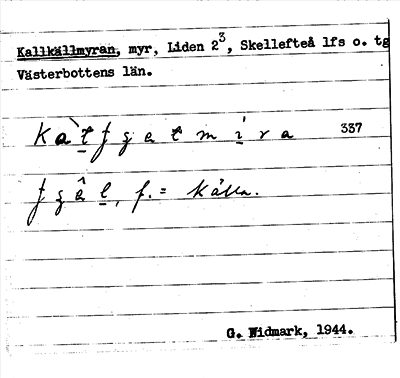 Kallkällmyran, myr, Liden 2³, Skellefteå lfs o. tg
Västerbottens län.
337
f. = källa.
G. Widmark, 1944.